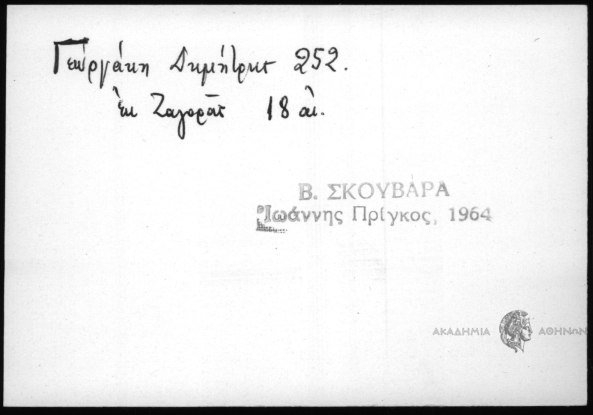 Γεωργάκη Δημήτρης 252.
ἐκ Ζαγορᾶς 18 αἰ.
Β. ΣΚΟΥΒΑΡΑ
Ἰωάννης Πρίγκος, 1964
ΑΚΑΔΗΜΙΑ ΑΘΗΝΩΝ